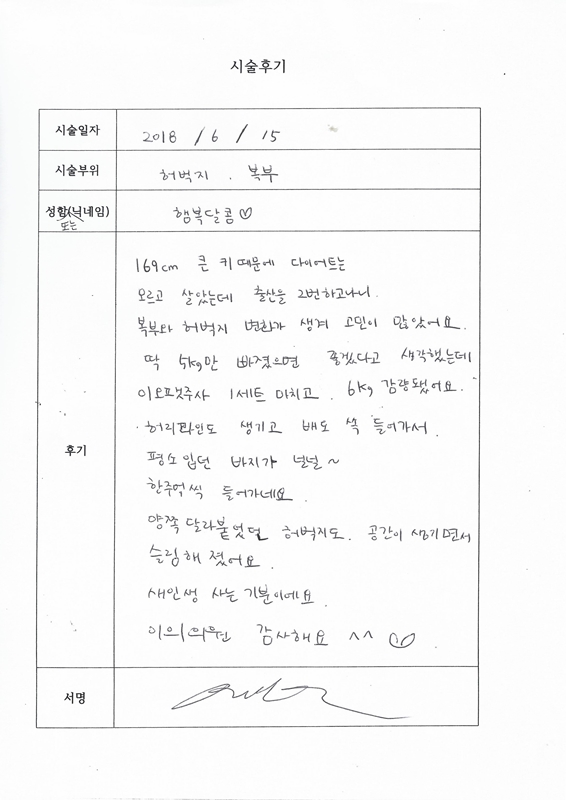 시술후기
시술일자 2018 / 6 / 15
시술부위 허벅지 . 복부
성함(닉네임) 행복달콤♡
또는
후기
169cm 큰 키 때문에 다이어트는
모르고 살았는데 출산을 2번하고나니.
복부와 허벅지 변화가 생겨 고민이 많았어요.
딱 5kg만 빠졌으면 좋겠다고 생각했는데
이오팻주사 1세트 마치고. 6kg 감량됐어요.
허리라인도 생기고 배도 쏙 들어가서.
평소 입던 바지가 널널~
한주먹씩 들어가네요.
양쪽 달라붙었던 허벅지도. 공간이 생기면서
슬림해 졌어요.
새인생 사는 기분이에요.
이의원 감사해요 ^^ ♡
서명